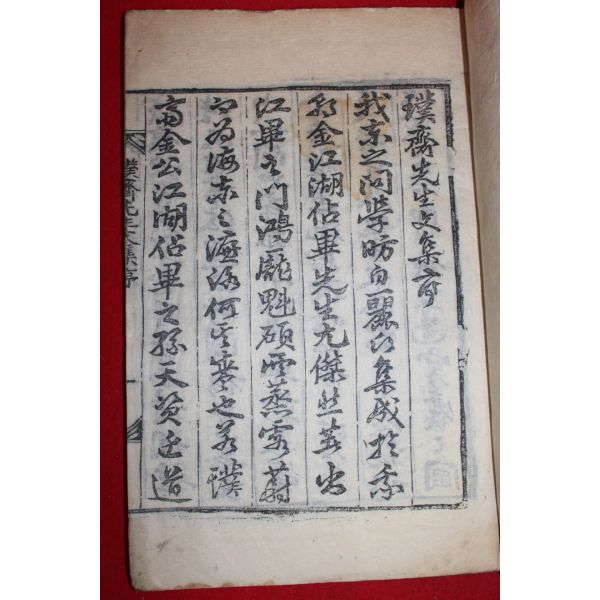 璞齋先生文集序
我東之問學昉自麗代集成於我
朝金江湖佔畢先生尤傑然並出
江畢之門鴻龐魁碩雲蒸霧蔚
為海東之濂洛何其等也若璞
齋金公江湖佔畢之孫天資近道
璞齋先生文集序